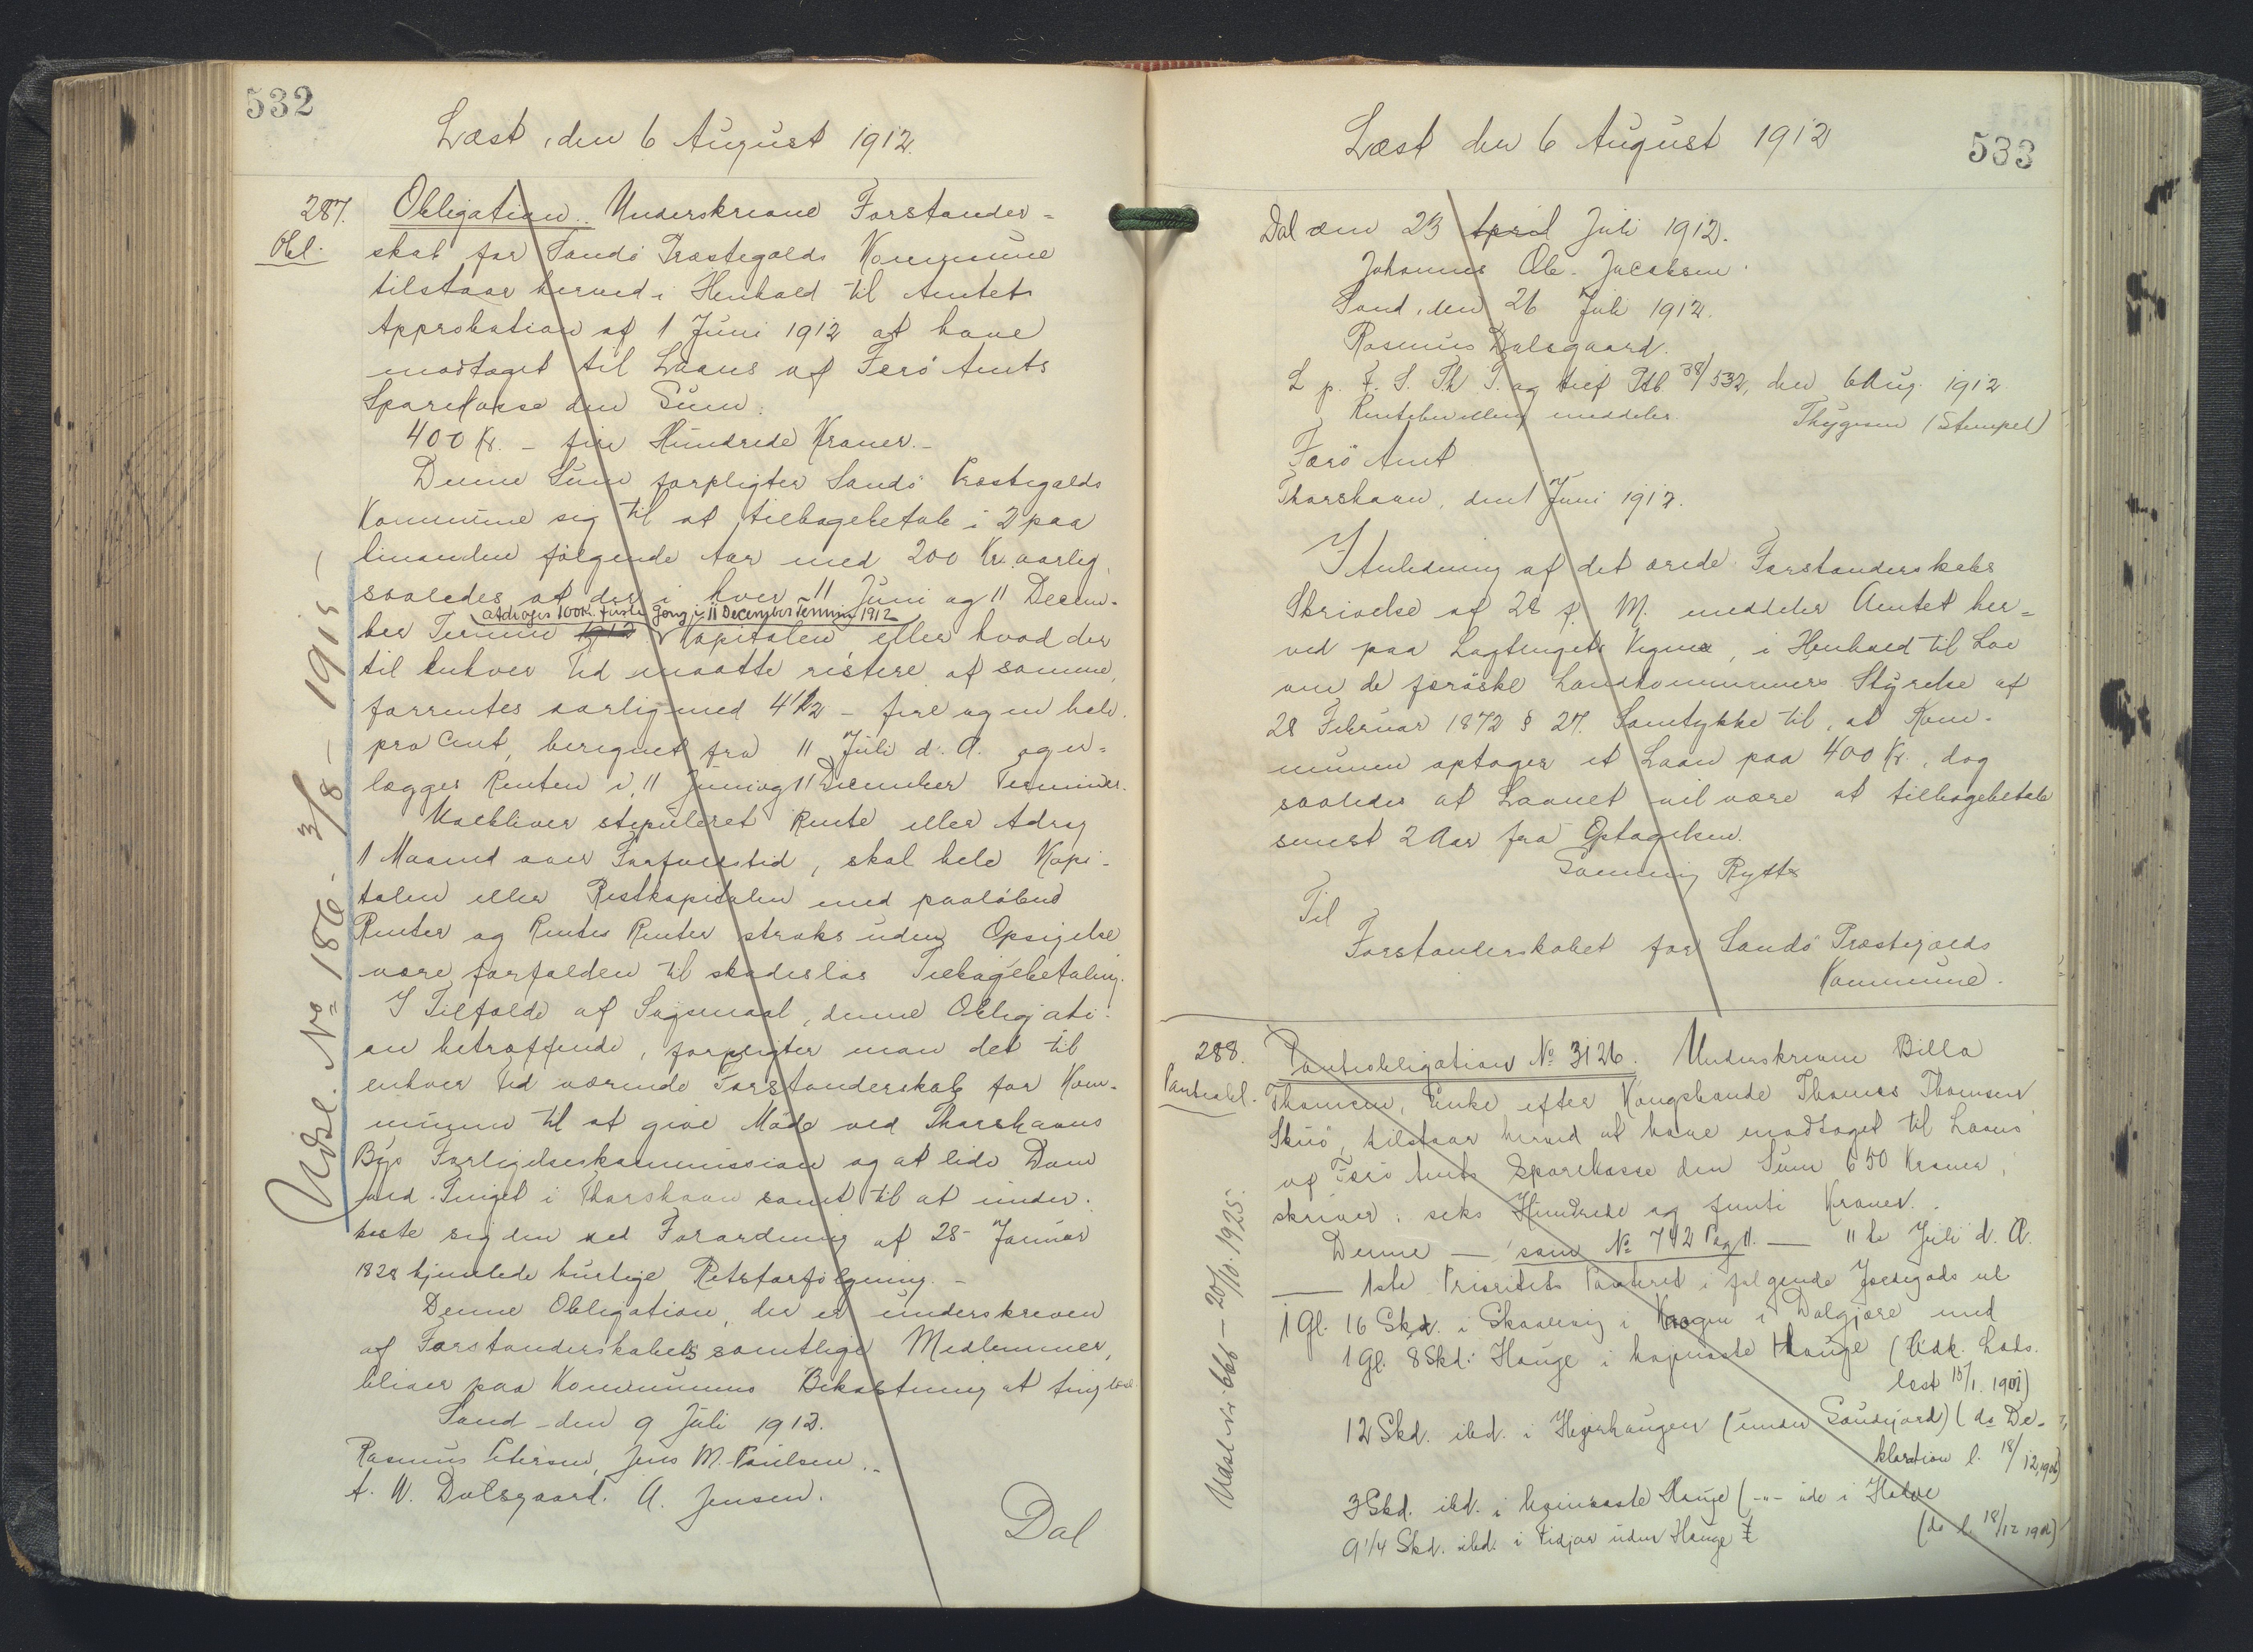 532
Læst, den 6 August 1912.
287. Obligation. Underskrevne Forstander-
Obl. skab for Sandö Præstegjælds Kommune
tilstaar herved i Henhold til Amtets
Approbation af 1 Juni 1912 at have
modtaget til Laans af Færö Amts
Sparekasse den Sum:
400 Kr. - fire Hundrede Kroner. -
Denne Sum forpligter Sandö Præstegjælds
Kommune sig til at tilbagebetale i 2 paa
hinanden følgende Aar med 200 Kr aarlig,
saaledes at der i hver 11 Juni og 11 Decem-
afdrages 100 Kr. første Gang i 11 December Termin 1912
ber Termin 1912. Kapitalen eller hvad der
til enhver Tid maatte restere af samme,
forrentes aarlig med 4 1/2 - fire og en halv
pro Cent, beregnet fra 11 Juli d. A. og er-
lægges Renten i 11 Juni og 11 December Terminer.
Udebliver stipuleret Rente eller Afdrag
1 Maaned over Forfaldstid, skal hele Kapi-
talen eller Restkapitalen med paaløbend
Renter og Rentes Renter straks uden Opsigelse
være forfalden til skadesløs Tilbagebetaling.
I Tilfælde af Søgsmaal, denne Obligati-
on betræffende, forpligter man det til
enhver Tid værende Forstanderskab for Kom-
munen til at give Möde ved Thorshavns
Bys Forligelseskommission og at lide Dom
ved Tinget i Thorshavn samt til at under-
kaste sig den ved Forordning af 28 Januar
1828 hjemlede hurtige Retsforfölgning. -
Denne Obligation, der er underskreven
af Forstanderskabets samtlige Medlemmer,
bliver paa Kommunens Bekostning at tinglæse
Sand den 9 Juli 1912.
Rasmus Petersen, Jens M. Poulsen.
A. W. Dalsgaard. A. Jensen.
Dal
Udsl. No 186 - 3/8 - 1915 -
Læst den 6 August 1912
533
Dal den 23 April Juli 1912.
Johannes Ole Jacobsen.
Sand, den 26 Juli 1912.
Rasmus Dalsgaard.
L p. F. S. Th T. og tilf Ptb. 38/532, den 6 Aug. 1912
meddeles Thygesen (Stempel)
Færö Amt
Thorshavn, den 1 Juni 1912.
I Anledning af det ærede Forstanderskabs
Skrivelse af 28 f. M. meddeler Amtet her-
ved paa Lagtingets Vegne, i Henhold til Lov
om de færöske Landkommuners Styrelse af
28 Februar 1872 § 27. Samtykke til, at Kom-
munen optager et Laan paa 400 Kr., dog
saaledes at Laanet vil være at tilbagebetale
senest 2 Aar fra Optagelsen.
Rytter
Til
Forstanderskabet for Sandö Præstegjælds
Kommune.
288. Panteobligation No 3126. Underskrevne Billa
Panteobl. Thomsen, Enke efter Kongsbonde Thomas Thomsen
Skuö, tilstaar herved at have modtaget til Laans
af Færö Amts Sparekasse den Sum 650 Kroner,
skriver: seks Hundrede og femti Kroner.
Denne — som No 742 Pag 11. — 11te Juli d. A.
— 1ste Prioritets Panteret i følgende Jordegods ul
1 Gl. 16 Skd. i Skaalevig i Krogen i Dalgjære med
1 Gl. 8 Skd. Hauge i hojnaste Hauge (Udk. Lods.
læst 15/1. 1901)
12 Skd. ibd. i (under ) (do De-
klaration l. 18/12 1906)
3 Skd. ibd. i Hauge (-"- ude i
(do l. 18/12 1906)
9 1/4 Skd. ibd. i uden Hauge
Udsl No 666 - 20/10. 1925.